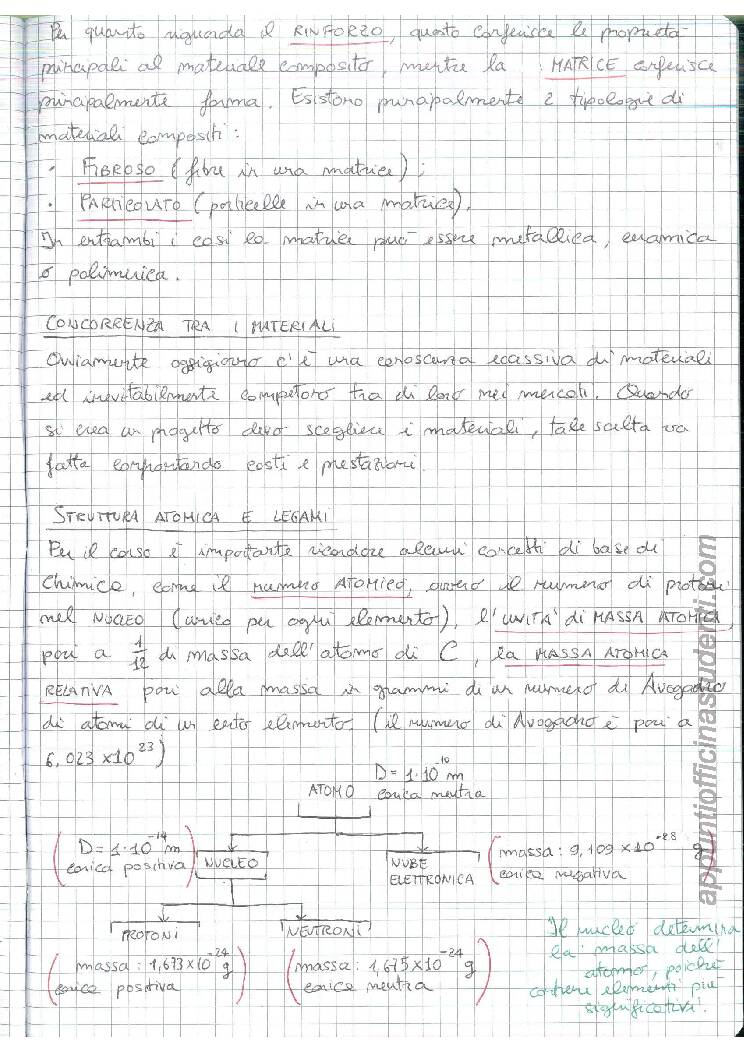 Per quanto riguarda il RINFORZO, questo conferisce le proprietà
principali al materiale composito, mentre la MATRICE conferisce
principalmente forma. Esistono principalmente 2 tipologie di
materiali compositi:
· FIBROSO (fibre in una matrice);
· PARTICOLATO (particelle in una matrice).
In entrambi i casi la matrice può essere metallica, ceramica
o polimerica.
CONCORRENZA TRA I MATERIALI
Ovviamente oggigiorno c'è una conoscenza eccessiva di materiali
ed inevitabilmente competono tra di loro nei mercati. Quando
si crea un progetto devo scegliere i materiali, tale scelta va
fatta confrontando costi e prestazioni.
STRUTTURA ATOMICA E LEGAMI
Per il corso è importante ricordare alcuni concetti di base di
Chimica, come il NUMERO ATOMICO, ovvero il numero di protoni
nel NUCLEO (unico per ogni elemento), l'UNITA' di MASSA ATOMICA,
pari a 1/12 di massa dell'atomo di C, la MASSA ATOMICA
RELATIVA pari alla massa in grammi di un numero di Avogadro
di atomi di un certo elemento. (il numero di Avogadro è pari a
6,023 x10^23)
D= 1·10^-10 m
ATOMO carica neutra
(D= 1·10^-14 m
carica positiva)
NUCLEO
NUBE
ELETTRONICA
(massa: 9,109 x10^-28 g
carica negativa)
PROTONI
NEUTRONI
(massa: 1,673x10^-24 g
carica positiva)
(massa: 1,675x10^-24 g
carica neutra)
Il nucleo determina
la massa dell'
atomo, poiché
contiene elementi più
significativi.
appuntiofficinastudenti.com